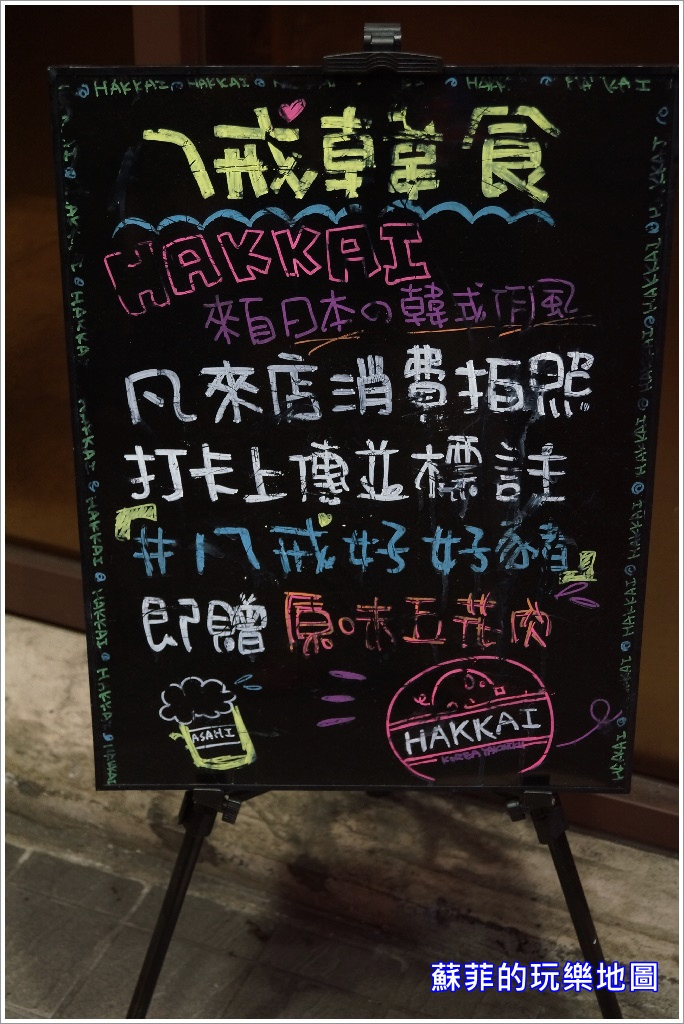 八戒韓食
HAKKAI
來自日本の韓式作風
凡來店消費拍照
打卡上傳並標註
『#八戒好好家》
即贈原味五花肉
ASAHI
HAKKAI
蘇菲的玩樂地圖